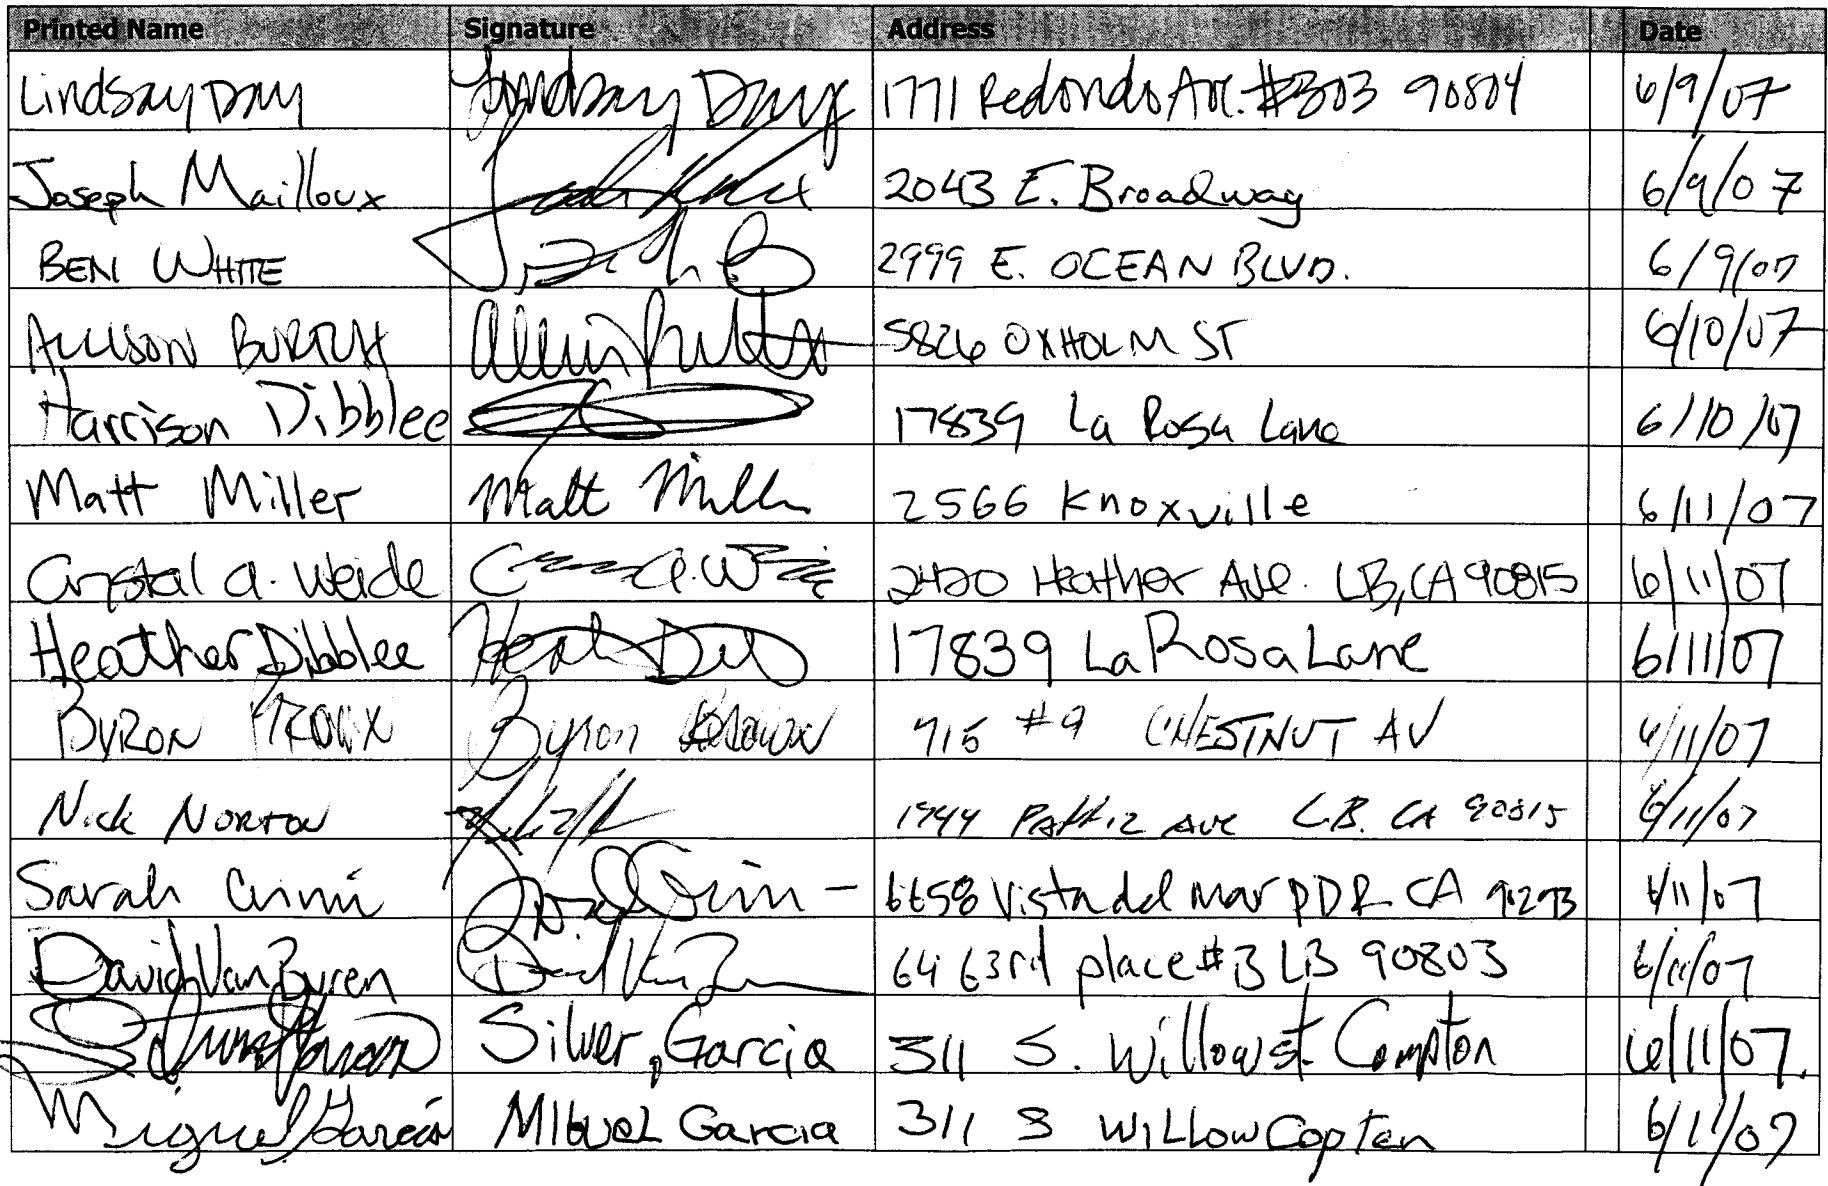 Printed Name Signature Address Date
Lindsay Day Lindsay Day 1771 Redondo Ave. #303 90804 6/9/07
Joseph Mailloux 2043 E. Broadway 6/9/07
BEN WHITE 2999 E. OCEAN BLVD. 6/9/07
ALLISON 5826 OXHOLM ST 6/10/07
Harrison Dibblee 17839 La Rosa Lane 6/10/07
Matt Miller Matt Miller 2566 Knoxville 6/11/07
Crystal a. Weide 2420 Heather Ave. LB, CA 90815 6/11/07
Heather Dibblee 17839 La Rosa Lane 6/11/07
BYRON Byron Brown 915 #9 CHESTNUT AV 6/11/07
Nick NORTON 1944 AVE L.B. CA 90815 6/11/07
Sarah 6658 Vista del mar PDR CA 90293 6/11/07
David Van Buren 64 63rd place #3 LB 90803 6/11/07
Silver Garcia 311 S. Willow st. Compton 6/11/07.
Miguel Garcia MIGUEL Garcia 311 S WILLOW Copton 6/11/07